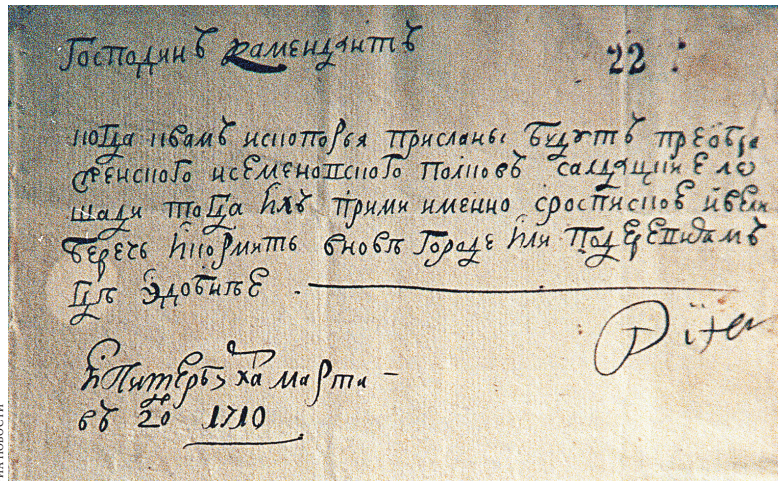 Господинъ камендантъ
22
когда квамъ исконорья присланы будутъ преобра
женского исеменовского полковъ салдацкие ло
шади тогда ихъ прими имянно сроспискоѣ ивели
беречь икормить вновѣ городе или подеревнямъ
гдѣ удобнѣе
Piter
Iс Питербурха марта
въ 20 де 1710